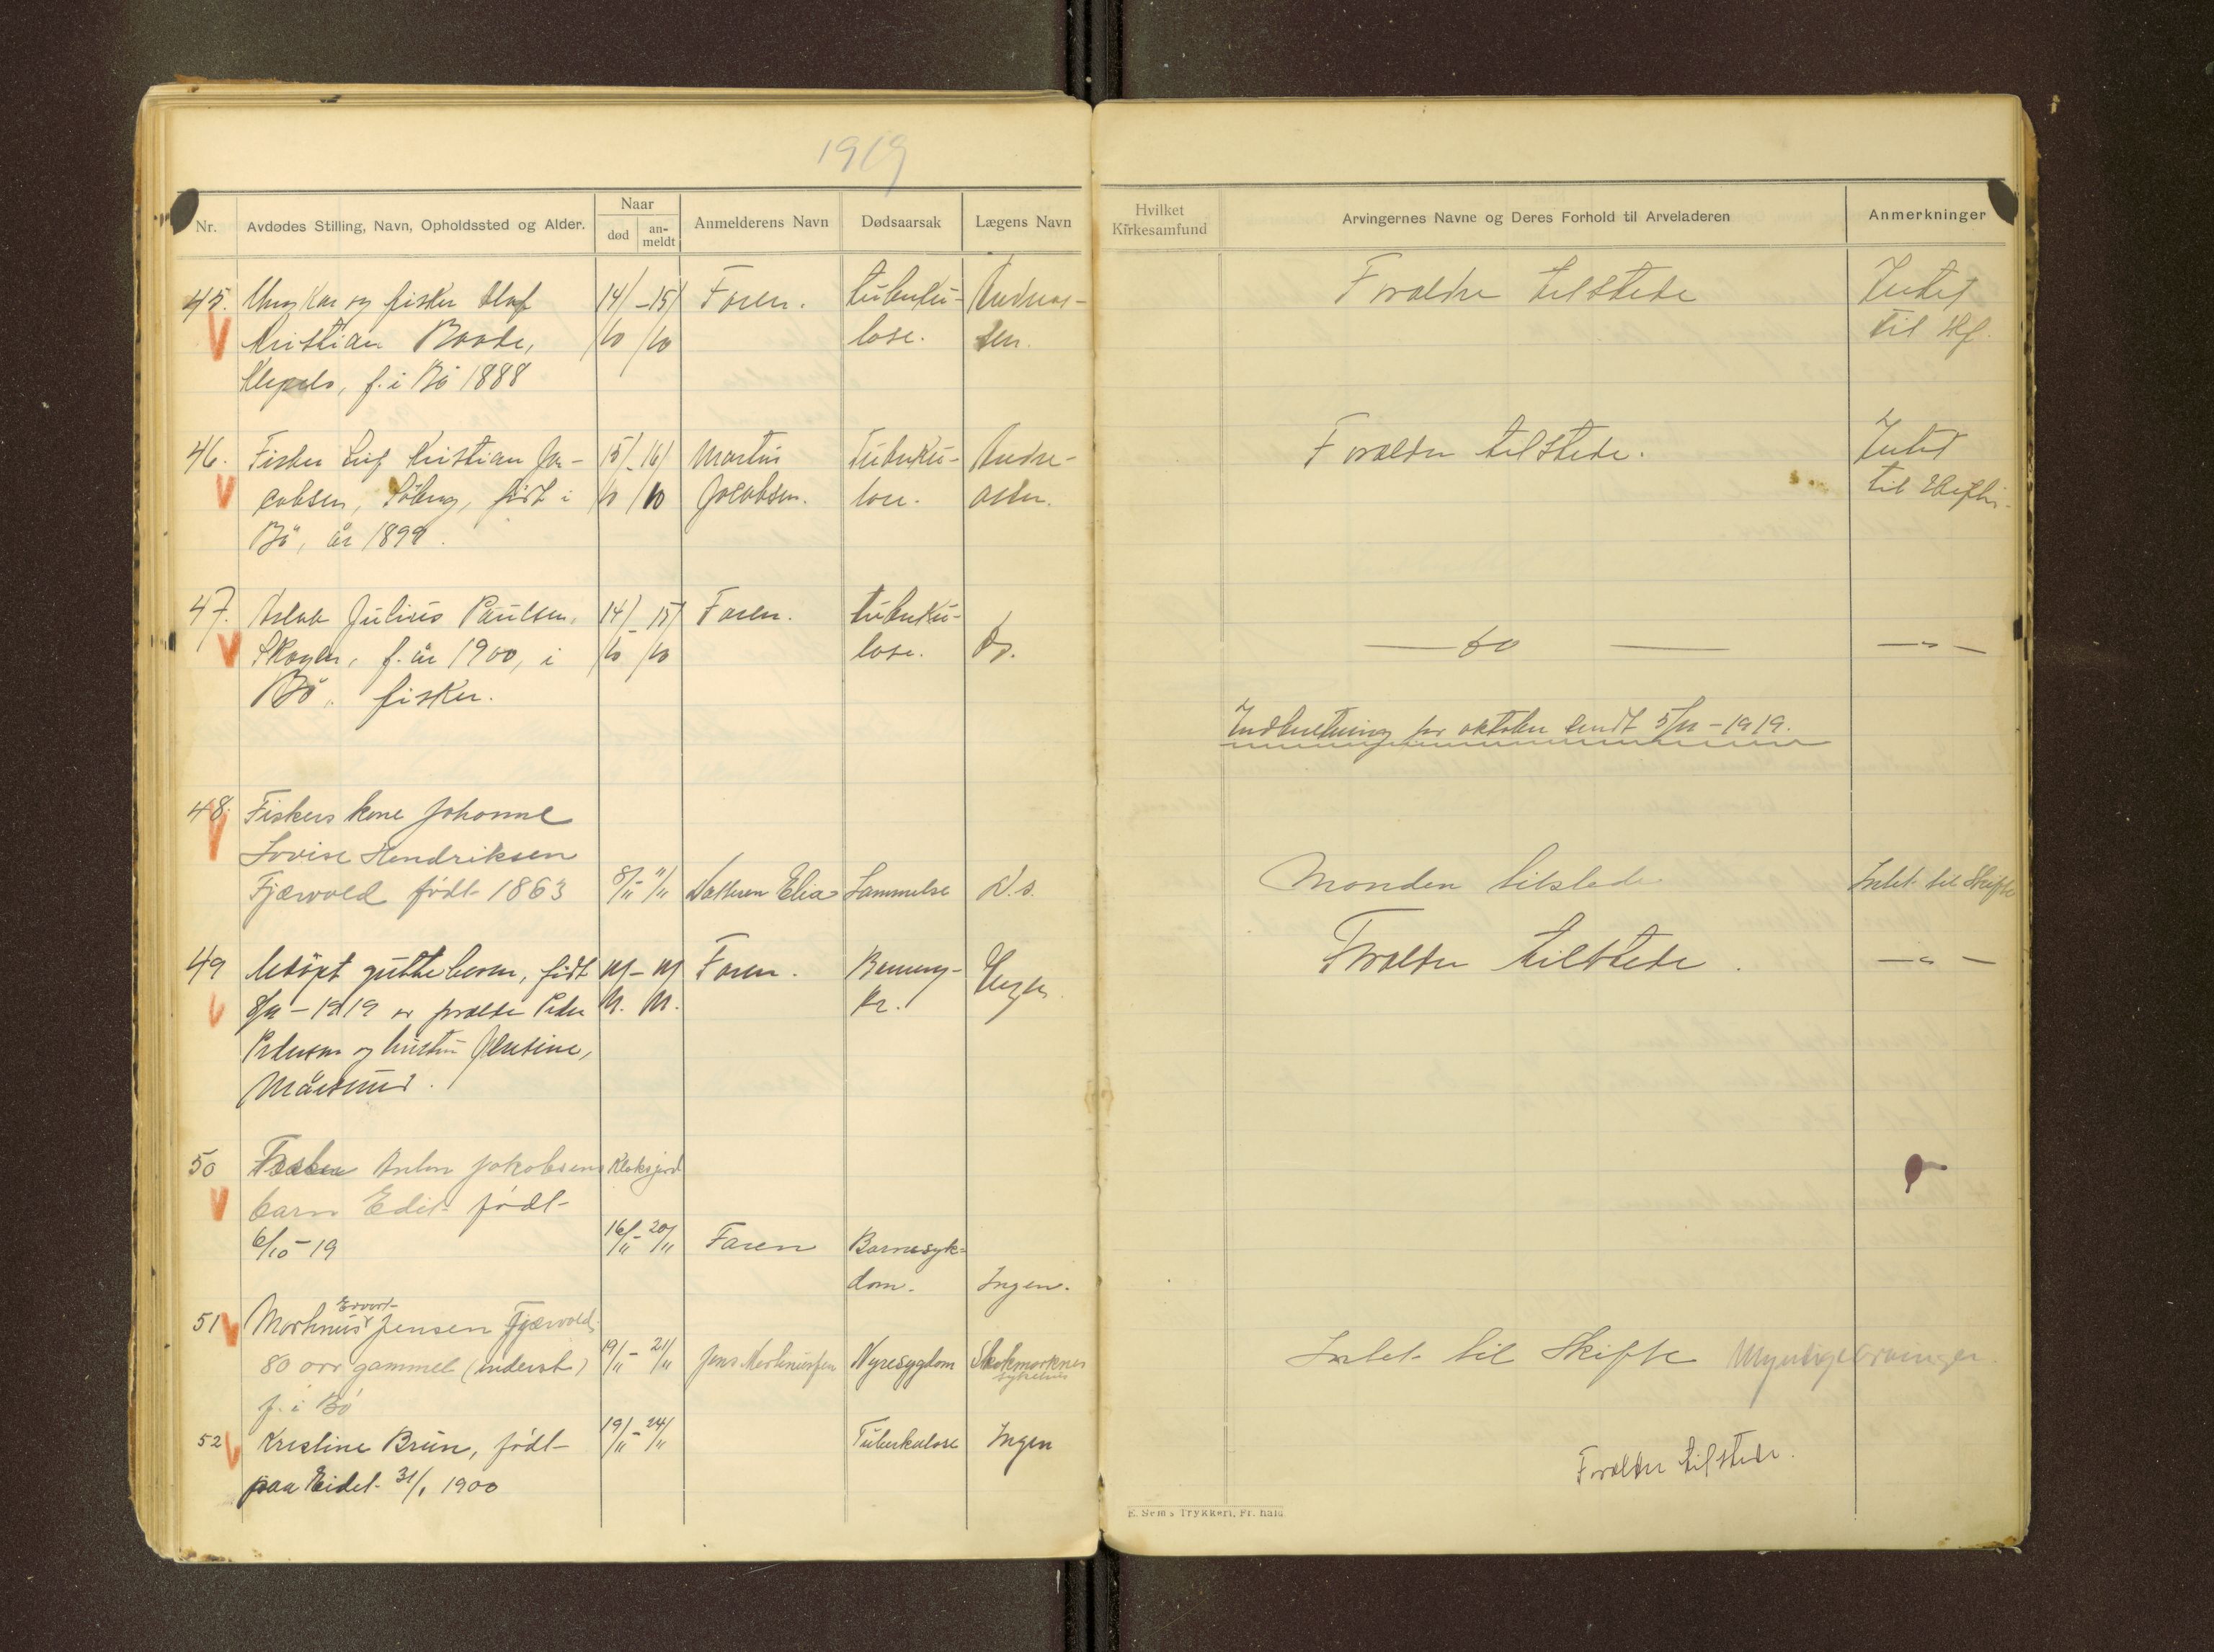 1919
Nr.
Avdødes Stilling, Navn, Opholdssted og Alder.
Naar
død
an-
meldt
Anmelderens Navn
Dødsaarsak
Lægens Navn
Hvilket
Kirkesamfund
Arvingernes Navne og Deres Forhold til Arveladeren
Anmerkninger
45. Ungkar og fisker Olaf 14/ - 15/ Faren. tuberku- Andreas-
Kristian Baade, 10 /10 lose. sen.
f. i Bö 1888
Forældre tilstede
Intet
til Skf.
46. Fisker Leif Kristian Ja- 15/ - 16/ Martin Tuberku- Andre-
cobsen, Söberg, född i 10 / 10 Jacobsen. lose. assen.
Bö, år 1899.
Forældre tilstede.
Intet
til Skifte.
47. Julius Paulsen, 14/ - 15/ Faren. tuberku-
Skagen, f. år 1900, i 10 /10 lose. Do.
Bö, fisker.
— do —
— " —
Indberetning for oktober sendt 5/11 - 1919.
48. Fiskers kone Johanne
Lovise Hendriksen
Fjærvold födt 1863 8/11 - 11/11 Datteren Elia Lammelse D. s.
Manden tilstede
Intet til Skifte
49 Udöpt guttebarn, födt Faren. Ingen
8/11 - 1919 av forældre Peder 11. 11.
Pedersen og hustru Jensine,
Målsund.
Forældre tilstede.
— " —
50 Fisker Anton Jakobsens Klaksjord
barn Edit födt
6/10 - 19 16/11 - 20/11 Faren Barnesyk-
dom. Ingen.
51 Martinus Jensen Fjærvold
80 aar gammel (inderst) 19/11 - 21/11 Jens Martinussen Nyresygdom Stokmarknes
sykehus
f. i Bö
Intet til Skifte Myndige arvinger.
52 Kristine Brun, födt 19/11 - 24/11 Tuberkulose Ingen
paa Eidet 31/1 1900
Forældre tilstede.
E. Sem's Trykkeri, Fr.hald